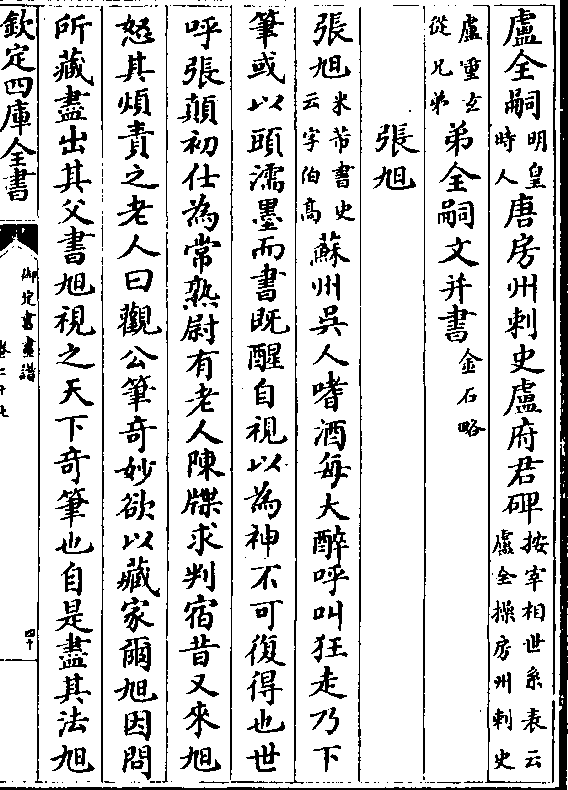 盧全嗣明皇時人唐房州刺史盧府君碑按宰相世系表云盧全操房州刺史
盧重玄從兄弟弟全嗣文并書金石略
張旭
張旭米芾書史云字伯高蘇州吳人嗜酒每大醉呼叫狂走乃下
筆或以頭濡墨而書既醒自視以為神不可復得也世
呼張顛初仕為常熟尉有老人陳牒求判宿昔又來旭
怒其煩責之老人曰觀公筆奇妙欲以藏家爾旭因問
所藏盡出其父書旭視之天下奇筆也自是盡其法旭
欽定四庫全書
御定書畫譜
卷二十七
四十